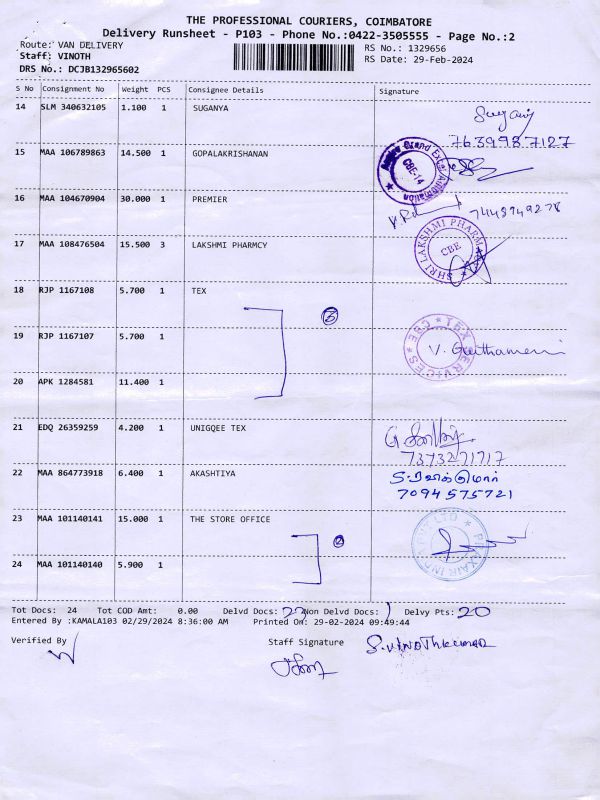 THE PROFESSIONAL COURIERS, COIMBATORE
Delivery Runsheet - P103 - Phone No.:0422-3505555 - Page No.:2
Route: VAN DELIVERY RS No.: 1329656
Staff: VINOTH RS Date: 29-Feb-2024
DRS No.: DCJB132965602
S No Consignment No Weight PCS Consignee Details Signature
14 SLM 340632105 1.100 1 SUGANYA
7639987127
15 MAA 106789863 14.500 1 GOPALAKRISHANAN
Grand Excel Automation CBE-14
16 MAA 104670904 30.000 1 PREMIER 7448949278
17 MAA 108476504 15.500 3 LAKSHMI PHARMCY SHRI LAKSHMI PHARM CBE
18 RJP 1167108 5.700 1 TEX
3
19 RJP 1167107 5.700 1 TEX SERVICES CBE
20 APK 1284581 11.400 1
21 EDQ 26359259 4.200 1 UNIQEE TEX
7373271717
22 MAA 864773918 6.400 1 AKASHTIYA
7094575721
23 MAA 101140141 15.000 1 THE STORE OFFICE
2
24 MAA 101140140 5.900 1
Tot Docs: 24 Tot COD Amt: 0.00 Delvd Docs: 22 Non Delvd Docs: 1 Delvy Pts: 20
Entered By :KAMALA103 02/29/2024 8:36:00 AM Printed On: 29-02-2024 09:49:44
Verified By Staff Signature S.VINOTHKUMAR